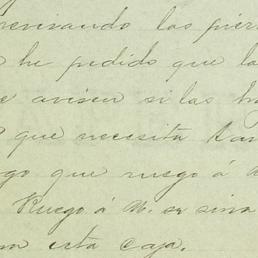 revisando las pier
he pedido que la
e avisen si las h
que necesita tan
go que ruego á
Ruego á M. se sirva
n esta caja.